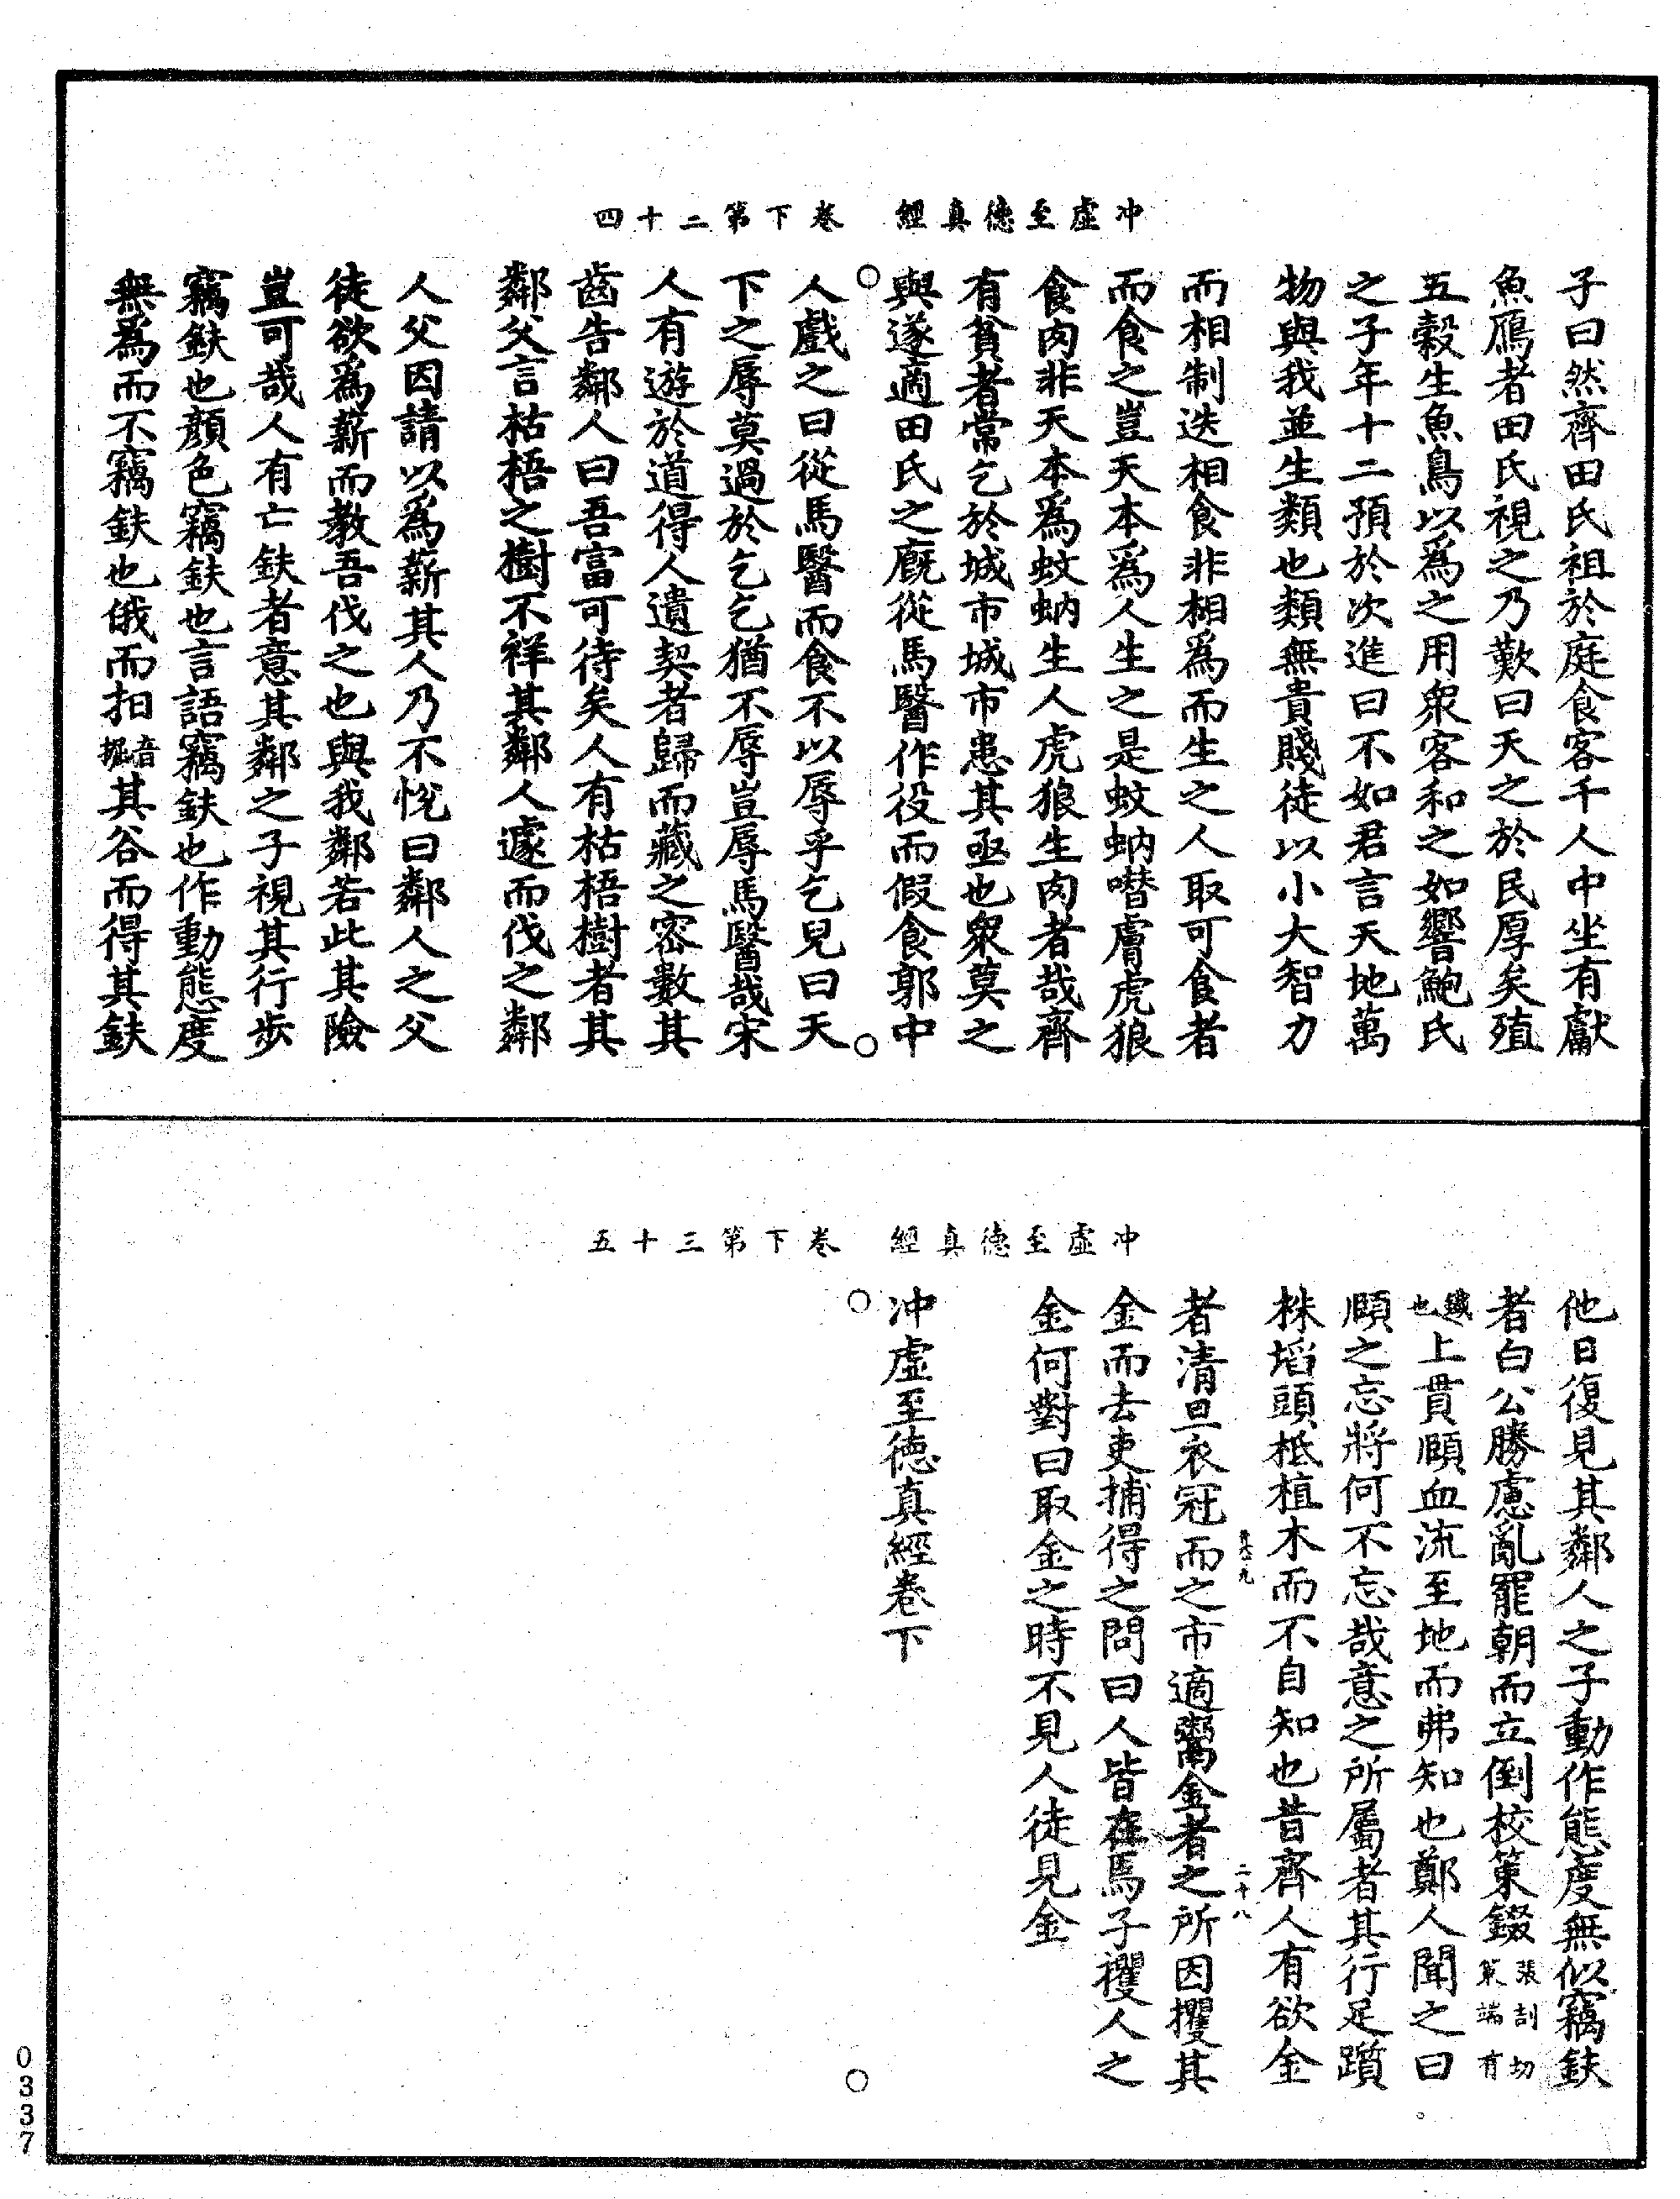 冲虛至德真經　卷下第二十四
子曰然齊田氏祖於庭食客千人中坐有獻
魚鴈者田氏視之乃歎曰天之於民厚矣殖
五穀生魚鳥以為之用衆客和之如響鮑氏
之子年十二預於次進曰不如君言天地萬
物與我並生類也類無貴賤徒以小大智力
而相制迭相食非相為而生之人取可食者
而食之豈天本為人生之是蚊蚋噆膚虎狼
食肉非天本為蚊蚋生人虎狼生肉者哉齊
有貧者常乞於城市城市患其亟也衆莫之
與遂適田氏之廐從馬醫作役而假食郭中
人戲之曰從馬醫而食不以辱乎乞兒曰天
下之辱莫過於乞乞猶不辱豈辱馬醫哉宋
人有遊於道得人遺契者歸而藏之密數其
齒告鄰人曰吾富可待矣人有枯梧樹者其
鄰父言枯梧之樹不祥其鄰人遽而伐之鄰
人父因請以為薪其人乃不悅曰鄰人之父
徒欲為薪而教吾伐之也與我鄰若此其險
豈可哉人有亡鈇者意其鄰之子視其行步
竊鈇也顏色竊鈇也言語竊鈇也作動態度
無為而不竊鈇也俄而抇音掘其谷而得其鈇
冲虛至德真經　卷下第三十五
他日復見其鄰人之子動作態度無似竊鈇
者白公勝慮亂罷朝而立倒杖策錣張劣切策端有
鐵也上貫頤血流至地而弗知也鄭人聞之曰
頤之忘將何不忘哉意之所屬者其行足躓
株埳頭柢植木而不自知也昔齊人有欲金
二十八
者清旦衣冠而之市適鬻金者之所因攫其
金而去吏捕得之問曰人皆在焉子攫人之
金何對曰取金之時不見人徒見金
冲虛至德真經卷下
0337